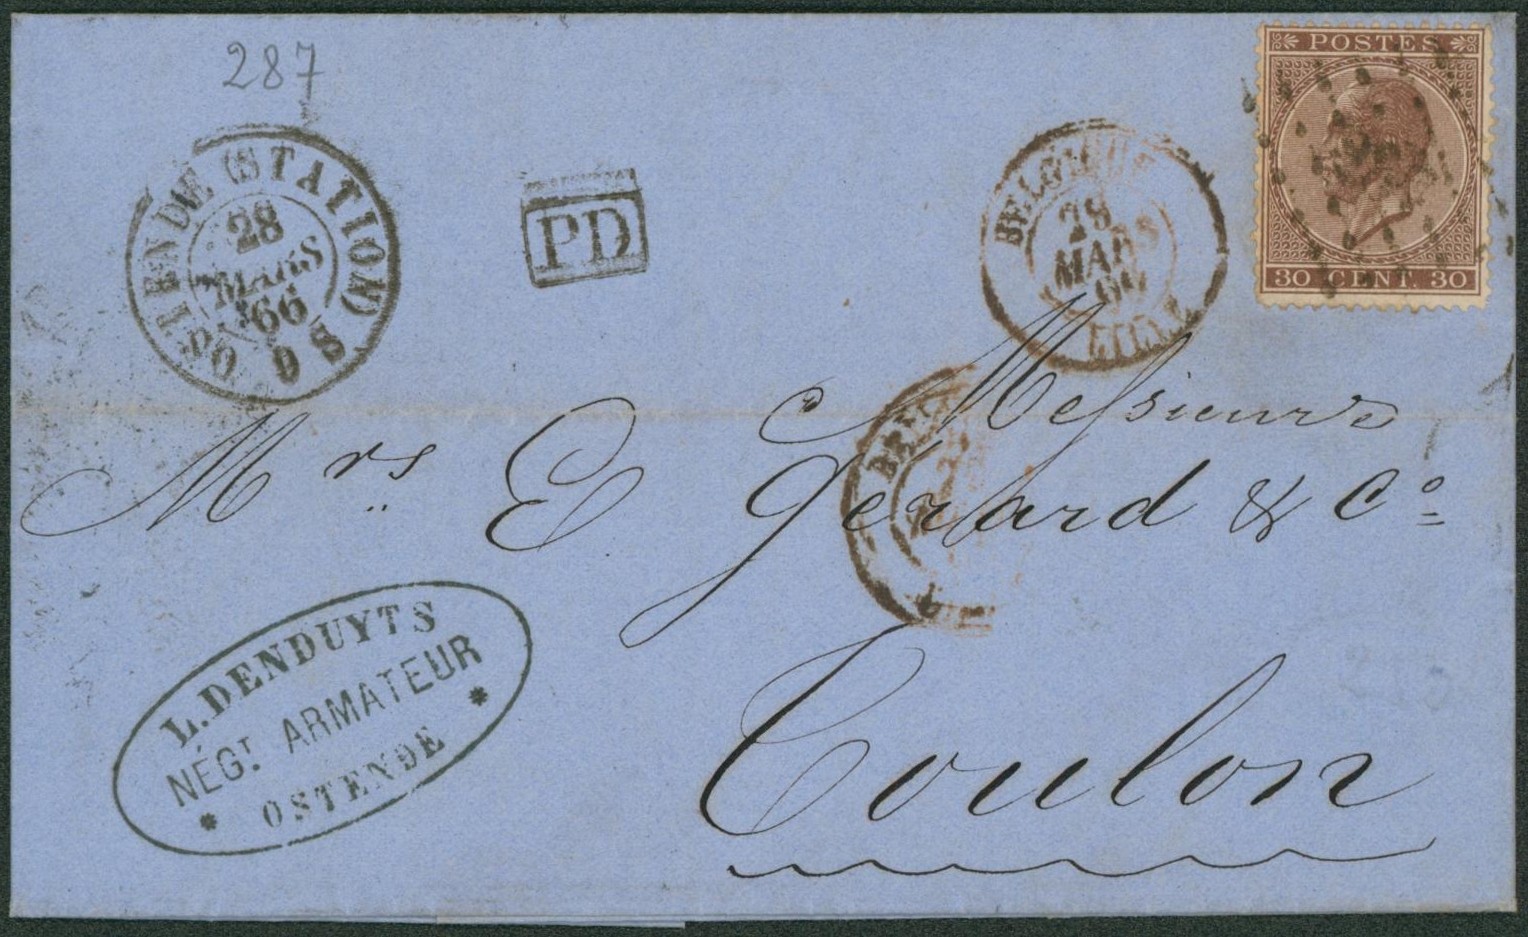 287
POSTES
30 CENT. 30
OSTENDE (STATION)
28
MARS
66
PD
BELGIQUE
28
MARS
LILLE
Messieurs
Mrs E Gerard & Co
Toulon
L. DENDUYTS
NÉGT ARMATEUR
* OSTENDE *